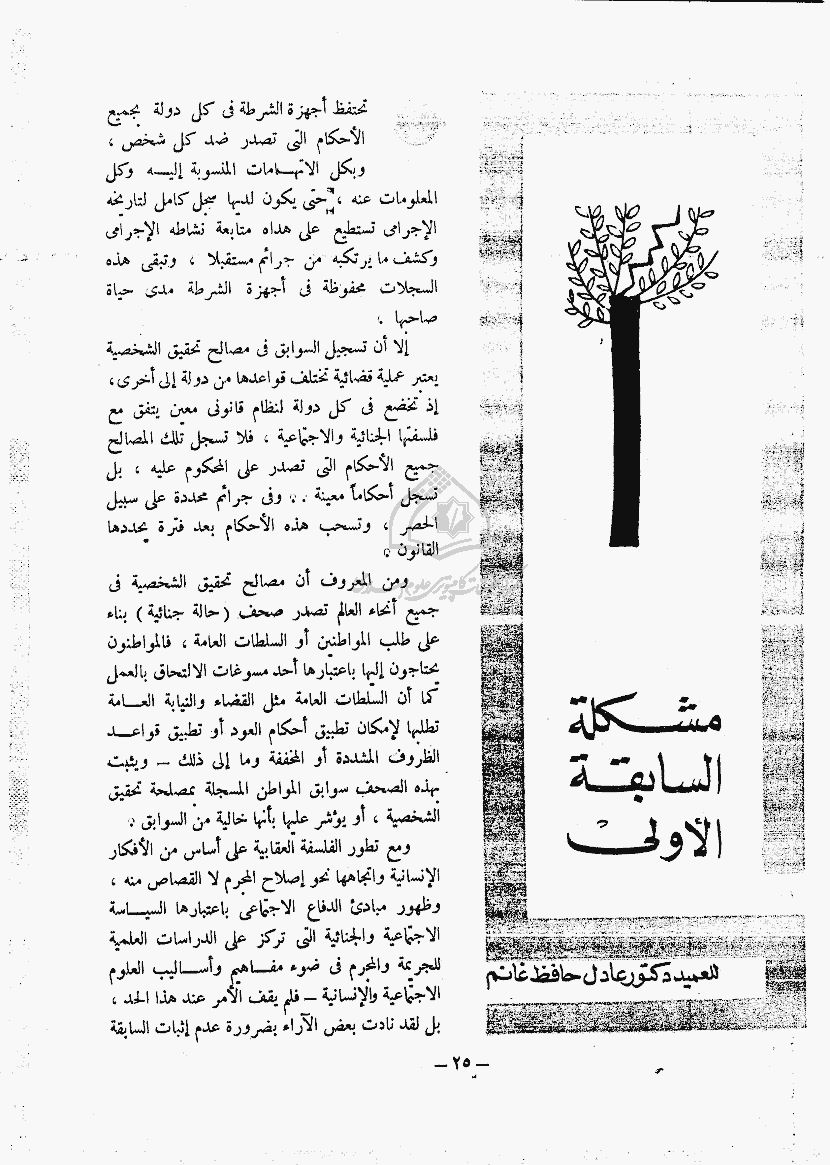 مشكلة
السابقة
الأولى
للعميد دكتور عادل حافظ غانم
تحتفظ أجهزة الشرطة فى كل دولة بجميع
الأحكام التى تصدر ضد كل شخص ،
وبكل الاتهـامات المنسوبة إليـه وكل
المعلومات عنه ، حتى يكون لديها سجل كامل لتاريخه
الإجرامى تستطيع على هداه متابعة نشاطه الإجرامى
وكشف ما يرتكبه من جرائم مستقبلا ، وتبقى هذه
السجلات محفوظة فى أجهزة الشرطة مدى حياة
صاحبها .
إلا أن تسجيل السوابق فى مصالح تحقيق الشخصية
يعتبر عملية قضائية تختلف قواعدها من دولة إلى أخرى ،
إذ تخضع فى كل دولة لنظام قانونى معين يتفق مع
فلسفتها الجنائية والاجتماعية ، فلا تسجل تلك المصالح
جميع الأحكام التى تصدر على المحكوم عليه ، بل
تسجل أحكاماً معينة . . وفى جرائم محددة على سبيل
الحصر ، وتسحب هذه الأحكام بعد فترة يحددها
القانون .
ومن المعروف أن مصالح تحقيق الشخصية فى
جميع أنحاء العالم تصدر صحف ( حالة جنائية ) بناء
على طلب المواطنين أو السلطات العامة ، فالمواطنون
يحتاجون إليها باعتبارها أحد مسوغات الالتحاق بالعمل
كما أن السلطات العامة مثل القضاء والنيابة العـامة
تطلبها لإمكان تطبيق أحكام العود أو تطبيق قواعـد
الظروف المشددة أو المخففة وما إلى ذلك — ويثبت
بهذه الصحف سوابق المواطن المسجلة بمصلحة تحقيق
الشخصية ، أو يؤشر عليها بأنها خالية من السوابق .
ومع تطور الفلسفة العقابية على أساس من الأفكار
الإنسانية واتجاهها نحو إصلاح المجرم لا القصاص منه ،
وظهور مبادئ الدفاع الاجتماعى باعتبارها السيـاسة
الاجتماعية والجنائية التى تركز على الدراسات العلمية
للجريمة والمجرم فى ضوء مفـاهيم وأسـاليب العلوم
الاجتماعية والإنسانية — فلم يقف الأمر عند هذا الحد ،
بل لقد نادت بعض الآراء بضرورة عدم إثبات السابقة
— ٢٥ —